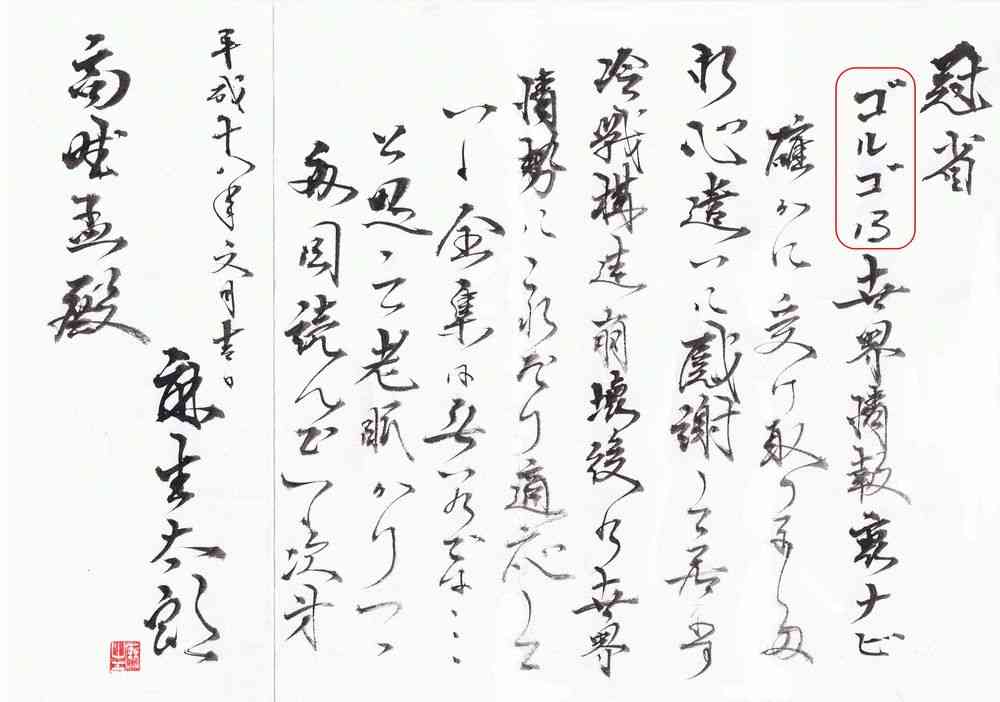 冠省
ゴルゴ13世界情報裏ナビ
確かに受け取りました
お心遣いに感謝して居ます
冷戦構造崩壊後の世界
情勢にこれだけ適応して
いる全集は無いのでは…
と思って老眼かりつつ
毎回読んでいる次第
平成十八年文月吉日
麻生太郎
殿